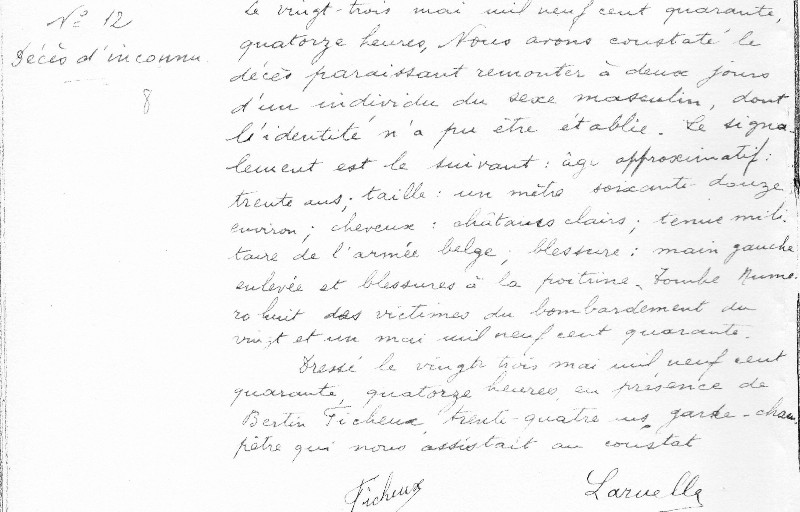 Nº 12
Décès d'inconnu.
8
Le vingt-trois mai mil neuf cent quarante,
quatorze heures, Nous avons constaté le
décès paraissant remonter à deux jours
d'un individu du sexe masculin, dont
l'identité n'a pu être établie. Le signa-
lement est le suivant : âge approximatif :
trente ans ; taille : un mètre soixante-douze
environ ; cheveux : châtains clairs ; tenue mili-
taire de l'armée belge ; blessure : main gauche
enlevée et blessures à la poitrine. Tombe Numé-
ro huit des victimes du bombardement du
vingt et un mai mil neuf cent quarante.
Dressé le vingt trois mai mil neuf cent
quarante, quatorze heures, en présence de
Bertin Ficheux, trente-quatre ans, garde-cham-
pêtre qui nous assistait au constat
Ficheux
Laruelle